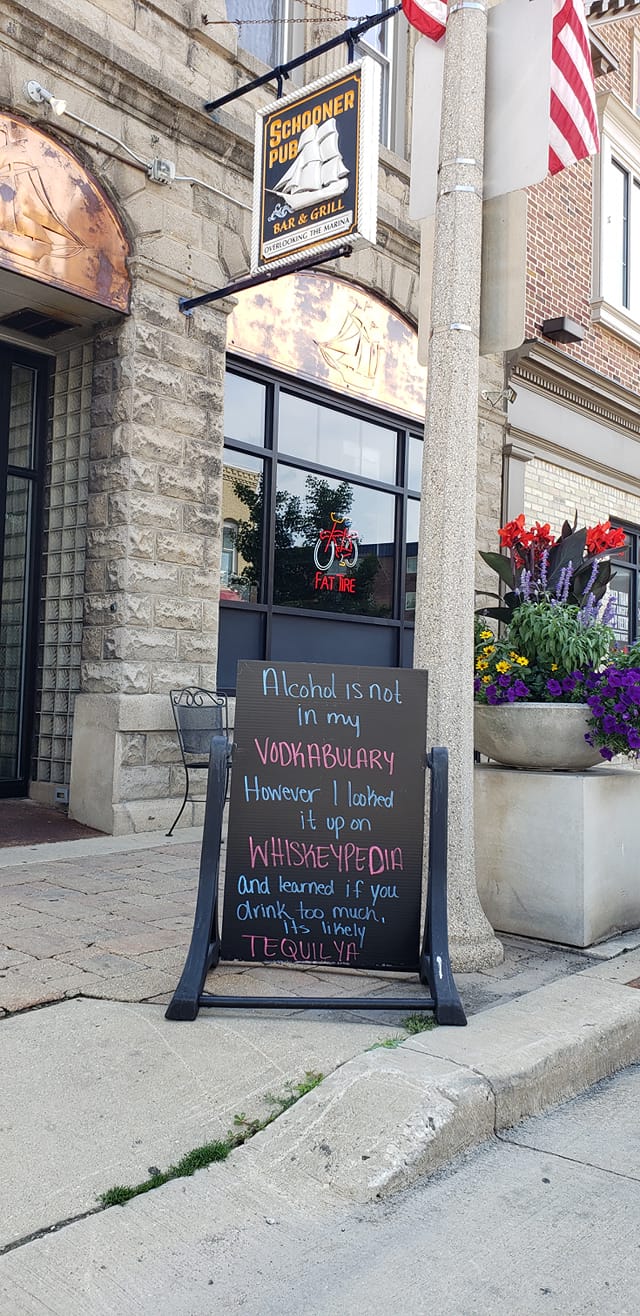 SCHOONER
PUB
BAR & GRILL
OVERLOOKING THE MARINA
FAT TIRE
Alcohol is not
in my
VODKABULARY
However I looked
it up on
WHISKEYPEDIA
and learned if you
drink too much,
its likely
TEQUILYA